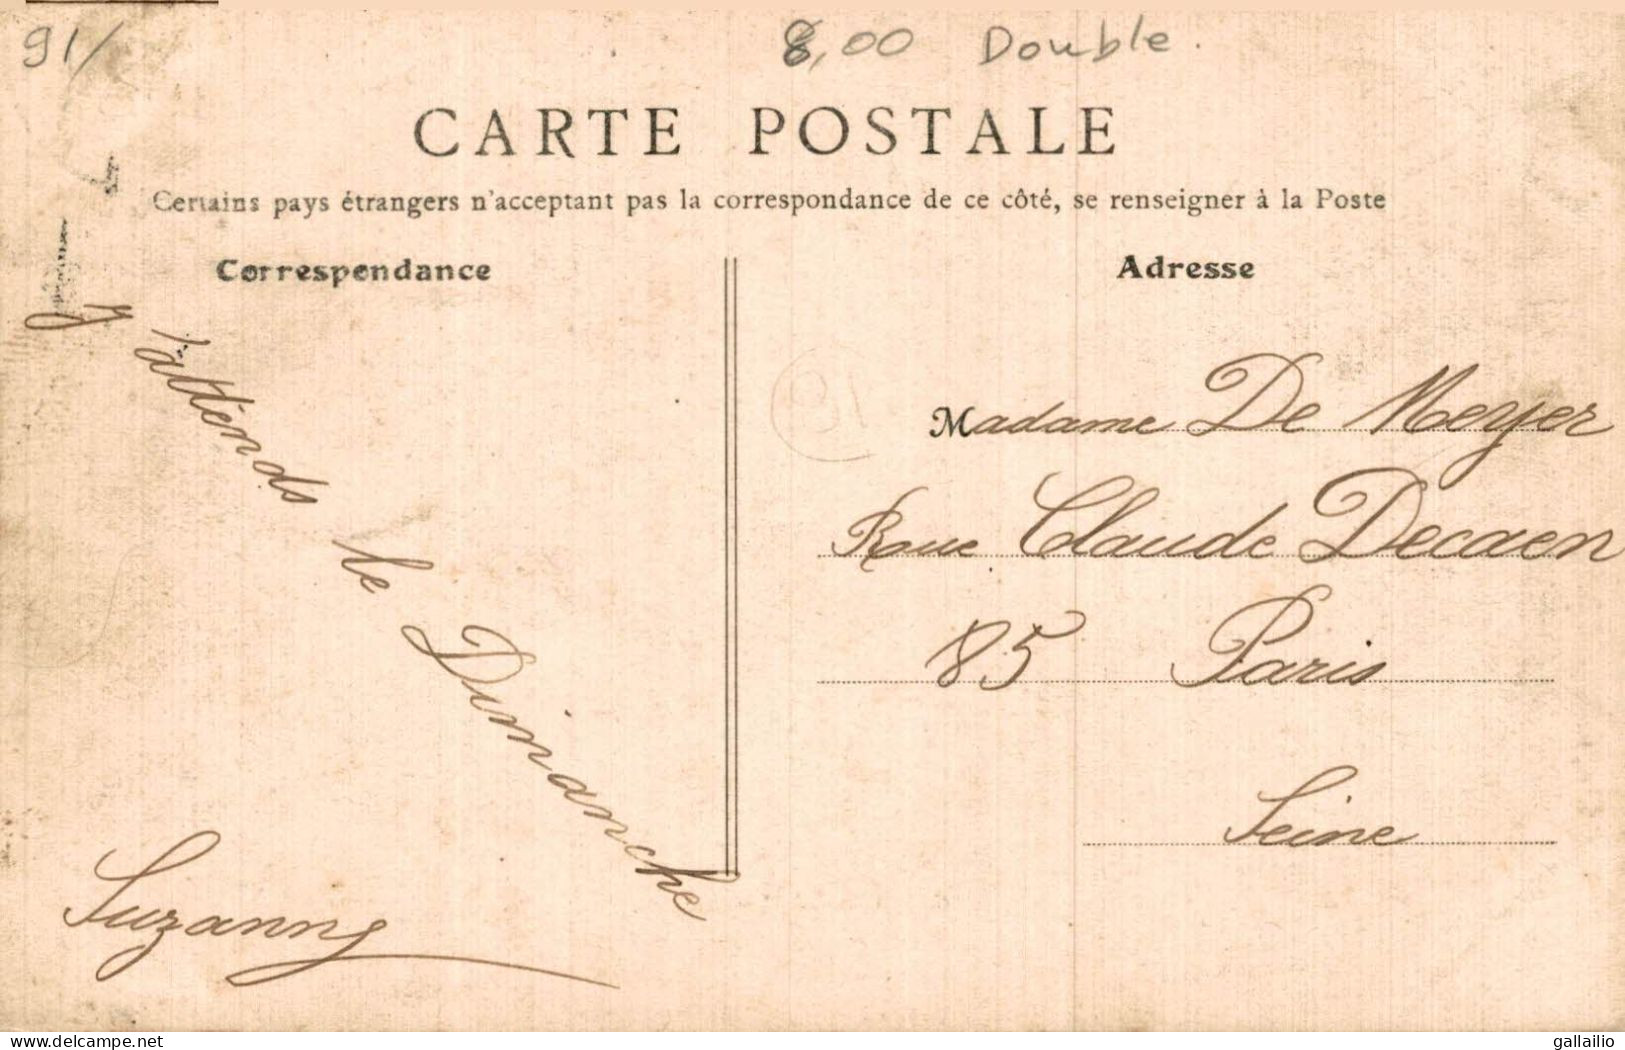 91/
8,00 Double.
CARTE POSTALE
Certains pays étrangers n'acceptant pas la correspondance de ce côté, se renseigner à la Poste
Correspondance
J'attends le Dimanche
Suzanne
Adresse
91
Madame De Meyer
Rue Claude Decaen
85 Paris
Seine
delcampe.net
gallailio